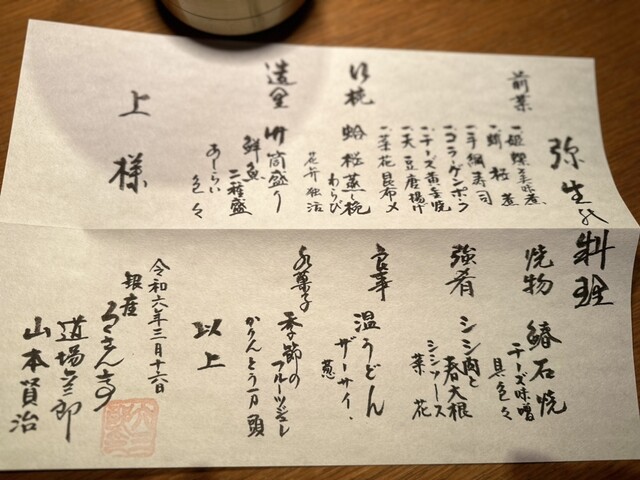 弥生の料理
前菜
一、姫螺旨味煮
一、蛸桜煮
一、手綱寿司
一、コラーゲンポーク
一、チーズ黄金焼
一、天豆磨揚げ
一、菜花昆布〆
椀
蛤桜蒸し椀
わらび
花弁独活
造里
竹筒盛り
鮮魚二種盛
あしらい色々
上様
焼物
鰆石焼
チーズ味噌
具色々
強肴
シシ肉と春大根
シシソース
菜花
食事
温うどん
ザーサイ、葱
水菓子
季節のフルーツジュレ
かりんとう万頭
以上
令和六年三月十六日
銀座
ろくさん亭
道場六三郎
山本賢治